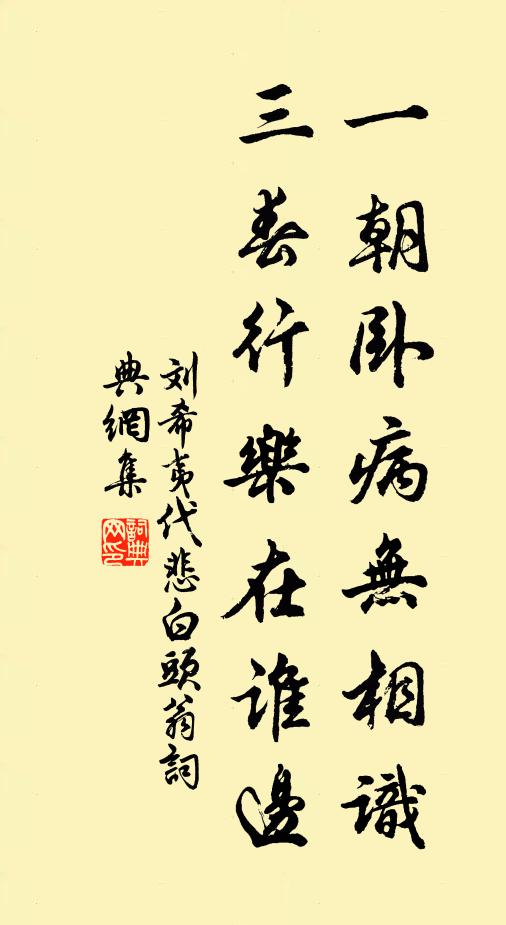 一朝卧病無相識
三春行樂在誰邊
刘希夷代悲白頭翁詞
典網集
詞典網印